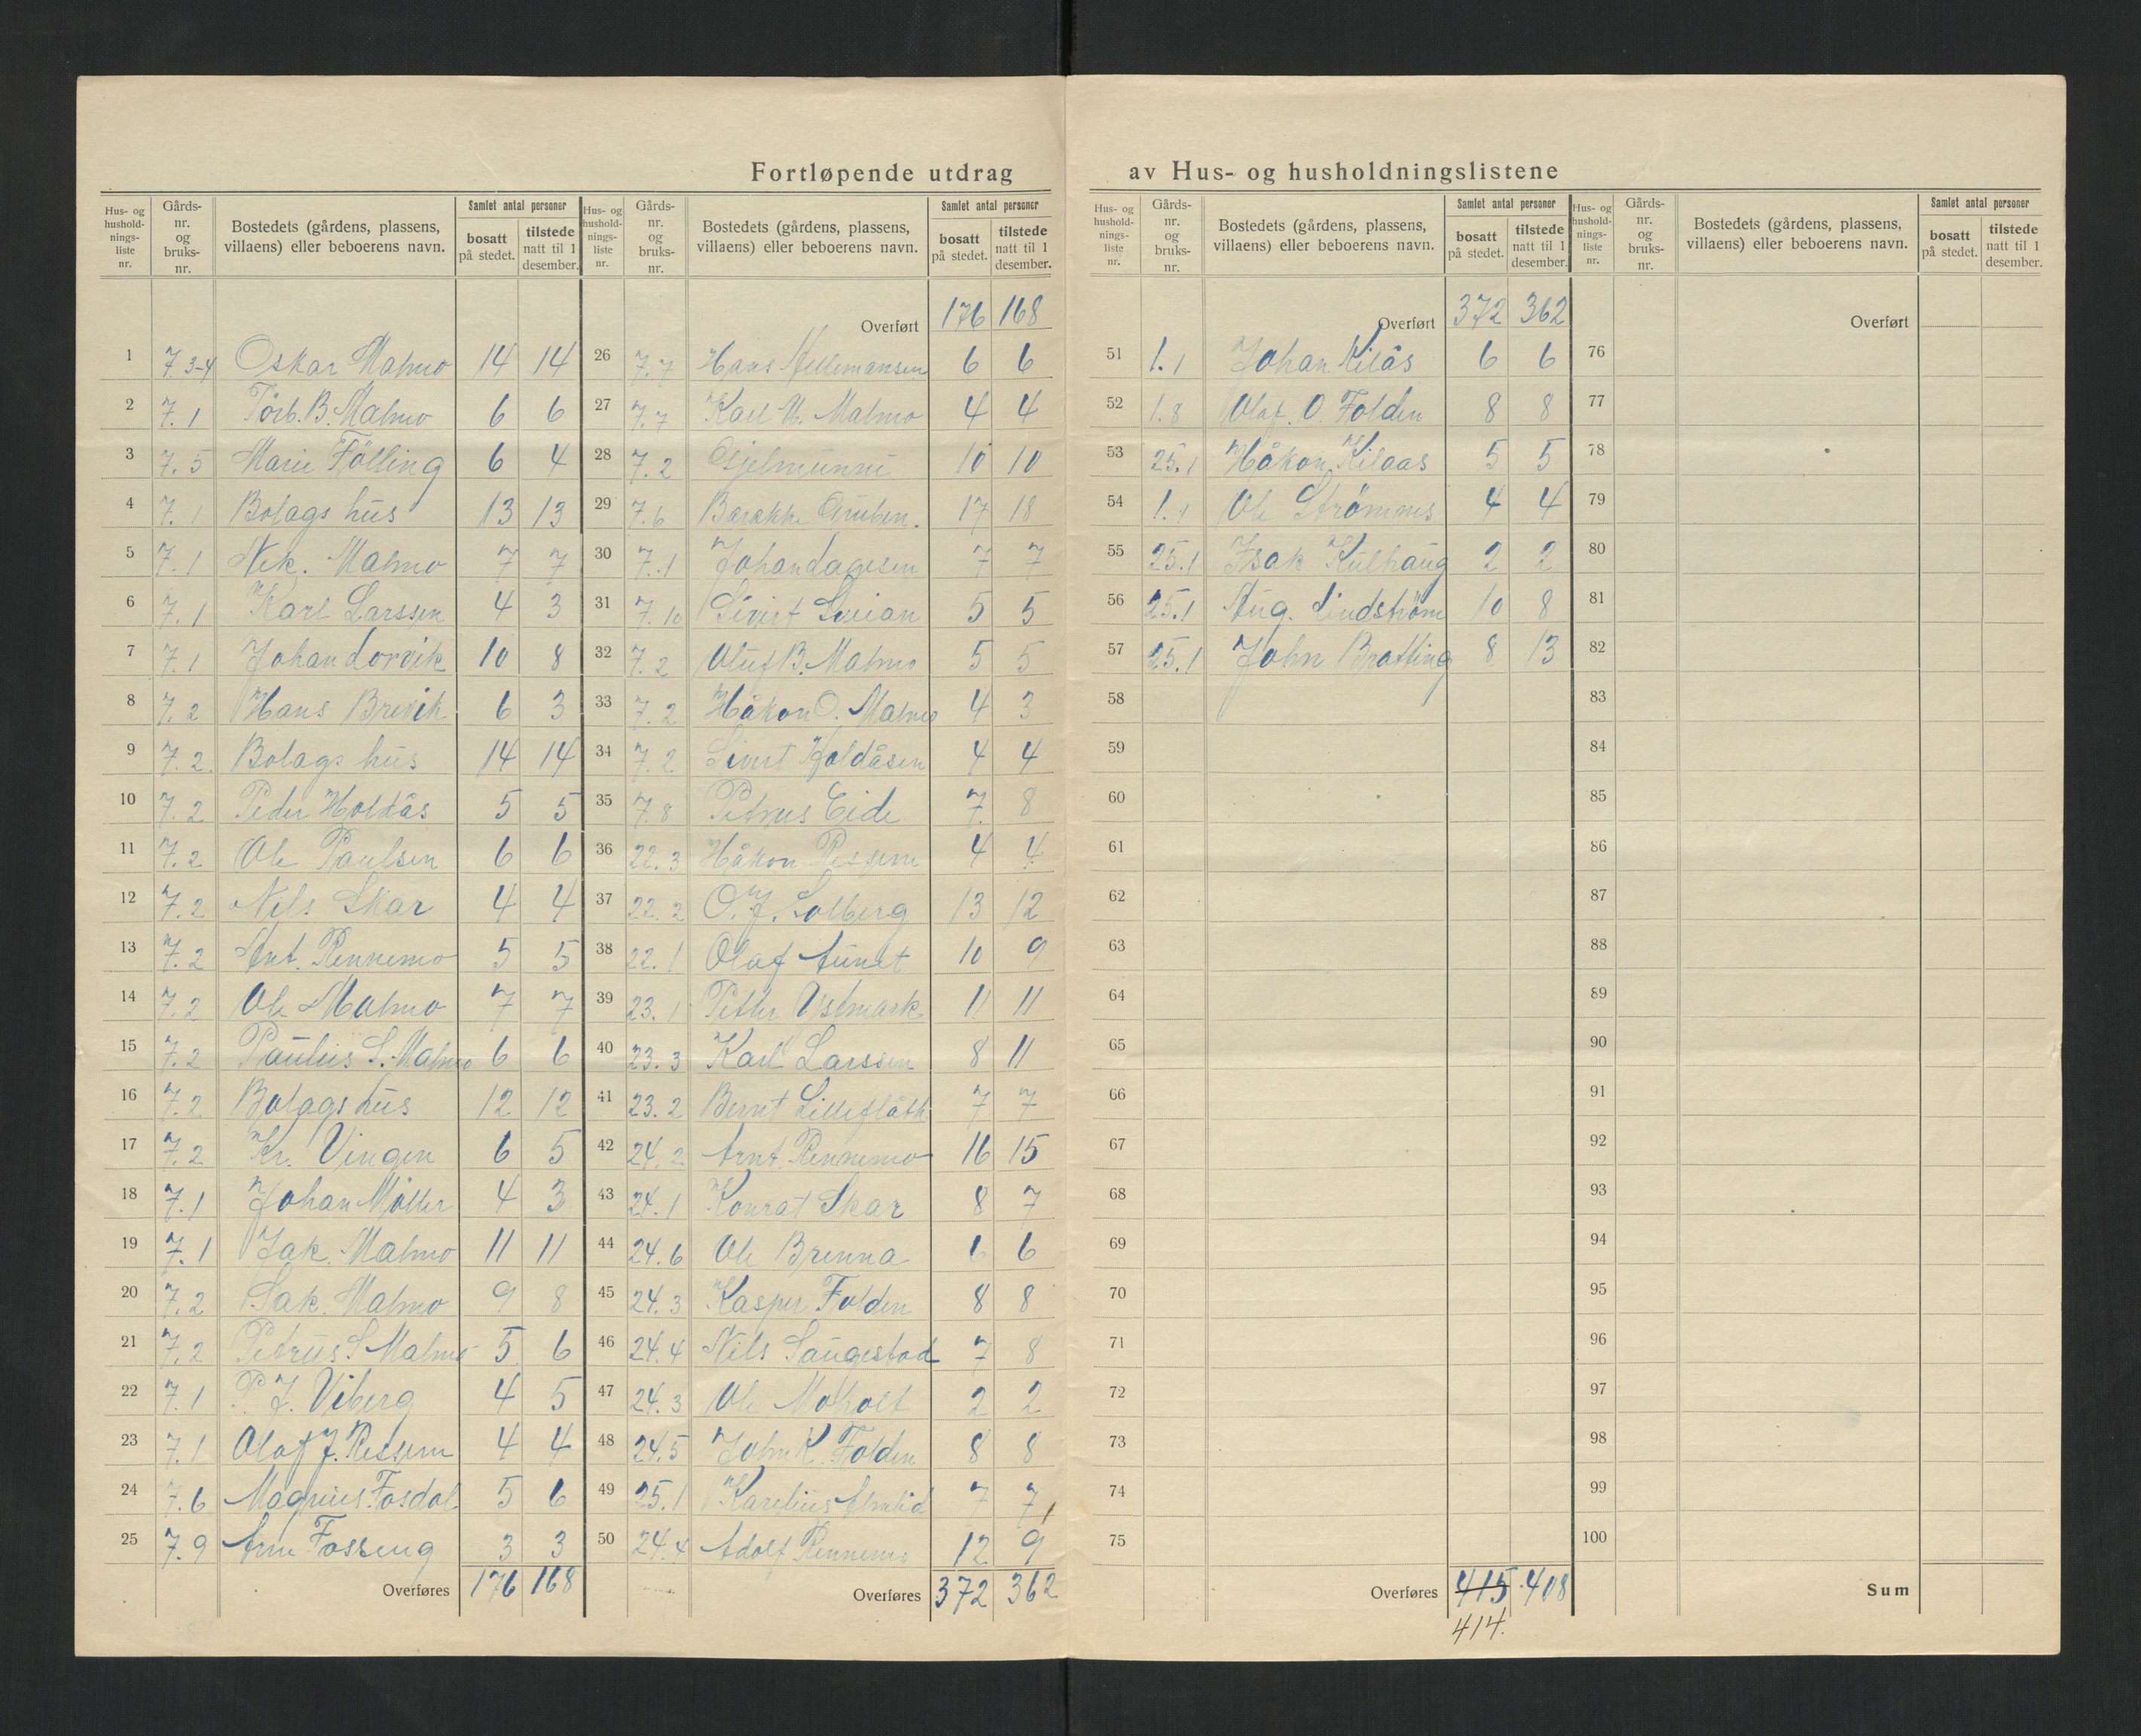 Fortløpende utdrag av Hus- og husholdningslistene
Hus- og hushold-nings-liste nr. Gårds-nr. og bruks-nr. Bostedets (gårdens, plassens, villaens) eller beboerens navn. Samlet antal personer bosatt på stedet. tilstede natt til 1 desember.
1 7.3-4 Oskar Malmo 14 14
2 7.1 Torb. B. Malmo 6 6
3 7.5 Marie Fölling 6 4
4 7.1 Bolags hus 13 13
5 7.1 Nek. Malmo 7 7
6 7.1 Karl Larssen 4 3
7 7.1 Johan Lorvik 10 8
8 7.2 Hans Brevik 6 3
9 7.2 Bolags hus 14 14
10 7.2 Peder Holdås 5 5
11 7.2 Ole Paulsen 6 6
12 7.2 Nils Skar 4 4
13 7.2 Arnt. Rennemo 5 5
14 7.2 Ole Malmo 7 7
15 7.2 Paulus S. Malmo 6 6
16 7.2 Bolags hus 12 12
17 7.2 Kr. Vingen 6 5
18 7.1 Johan Möller 4 3
19 7.1 Jak. Malmo 11 11
20 7.2 Sak. Malmo 9 8
21 7.2 Petrus S. Malmo 5 6
22 7.1 P. J. Viberg 4 5
23 7.1 Olaf J. Ressem 4 4
24 7.6 Magnus Fosdal 5 6
25 7.9 Arne Fosseng 3 3
Overføres 176 168
Hus- og hushold-nings-liste nr. Gårds-nr. og bruks-nr. Bostedets (gårdens, plassens, villaens) eller beboerens navn. Samlet antal personer bosatt på stedet. tilstede natt til 1 desember.
Overført 176 168
26 7.7 Hans 6 6
27 7.7 Karl U. Malmo 4 4
28 7.2 10 10
29 7.6 Barakke Gruben. 17 18
30 7.1 Johan 7 7
31 7.10 Sivert 5 5
32 7.2 Oluf B. Malmo 5 5
33 7.2 Håkon O. Malmo 4 3
34 7.2 Sivert Holdåsen 4 4
35 7.8 Petrus Eide 7 8
36 22.3 Håkon Ressem 4 4
37 22.2 O. J. Solberg 13 12
38 22.1 Olaf Aunet 10 9
39 23.1 Petter Vstmark 11 11
40 23.3 Karl Larssen 8 11
41 23.2 Bernt Lilleflåth 7 7
42 24.2 Arnt Rennemo 16 15
43 24.1 Konrat Skar 8 7
44 24.6 Ole Brenna 6 6
45 24.3 Kasper Folden 8 8
46 24.4 Nils Saugestad 7 8
47 24.3 Ole Moholt 2 2
48 24.5 John K. Folden 8 8
49 25.1 Karelius Almlid 7 7
50 24.4 Adolf Rennemo 12 9
Overføres 372 362
Hus- og hushold-nings-liste nr. Gårds-nr. og bruks-nr. Bostedets (gårdens, plassens, villaens) eller beboerens navn. Samlet antal personer bosatt på stedet. tilstede natt til 1 desember.
Overført 372 362
51 1.1 Johan Kilås 6 6
52 1.8 Olaf. O. Folden 8 8
53 25.1 Håkon Kilaas 5 5
54 1.1 Ole Strömnes 4 4
55 25.1 Isak Kulhaug 2 2
56 25.1 Aug. Lindström 10 8
57 25.1 John Bratling 8 13
58
59
60
61
62
63
64
65
66
67
68
69
70
71
72
73
74
75
Overføres 415 408
414.
Hus- og hushold-nings-liste nr. Gårds-nr. og bruks-nr. Bostedets (gårdens, plassens, villaens) eller beboerens navn. Samlet antal personer bosatt på stedet. tilstede natt til 1 desember.
Overført
76
77
78
79
80
81
82
83
84
85
86
87
88
89
90
91
92
93
94
95
96
97
98
99
100
Sum